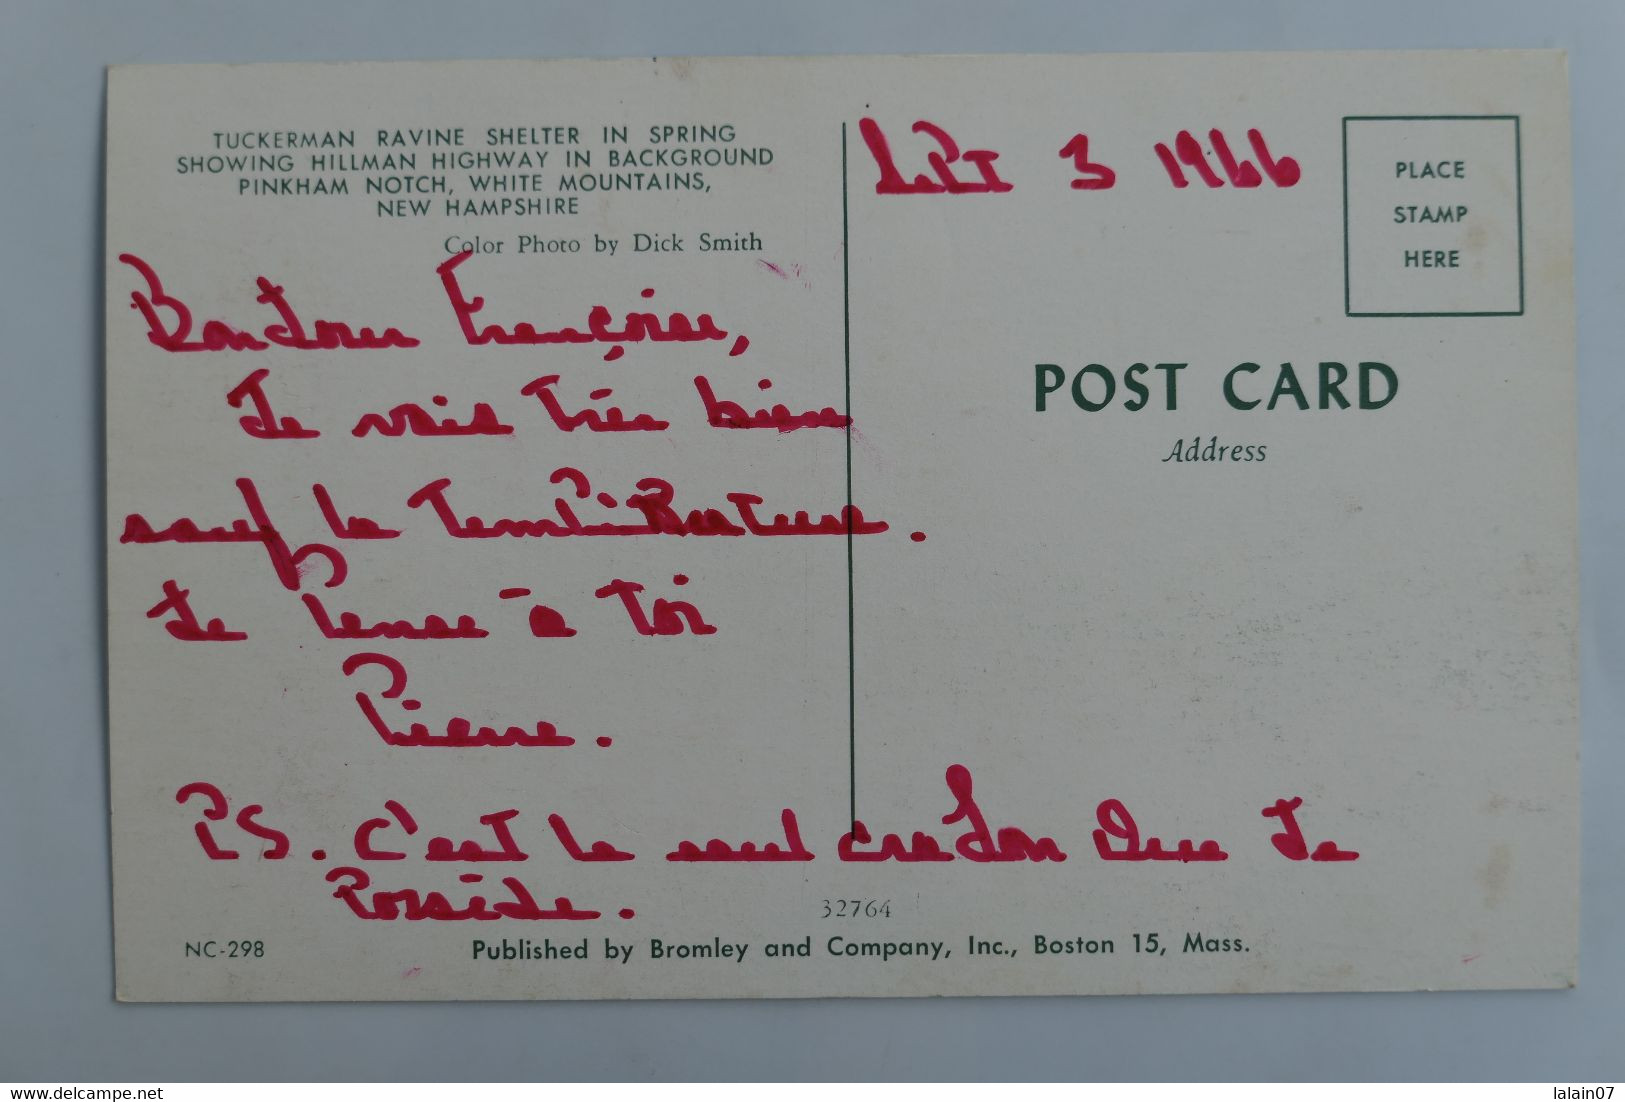 TUCKERMAN RAVINE SHELTER IN SPRING
SHOWING HILLMAN HIGHWAY IN BACKGROUND
PINKHAM NOTCH, WHITE MOUNTAINS,
NEW HAMPSHIRE
Color Photo by Dick Smith
Sept 3 1966
PLACE
STAMP
HERE
POST CARD
Address
Bonjour Françoise,
Je vais très bien
sauf la température.
Je pense à toi
Pierre.
PS. C'est le seul crayon que je
possède.
32764
NC-298
Published by Bromley and Company, Inc., Boston 15, Mass.
www.delcampe.net
lalain07